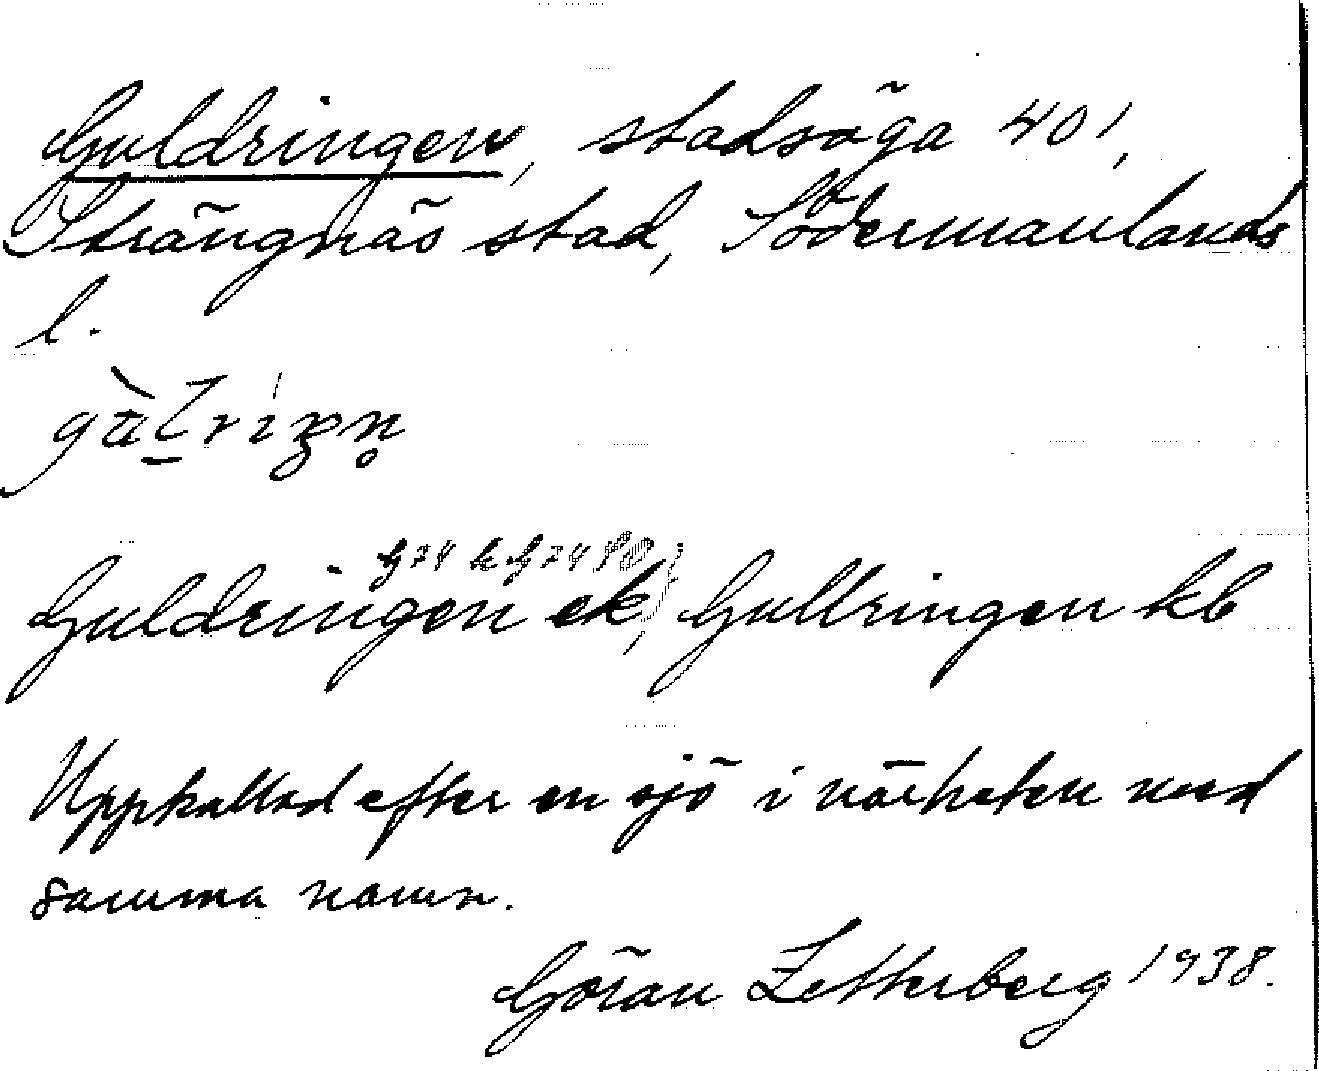 Guldringen, stadsäga 401,
Strängnäs stad, Södermanlands
l.
Guldringen ek, Gullringen kb
Uppkallad efter en sjö i närheten med
samma namn.
Göran Zetterberg 1938.